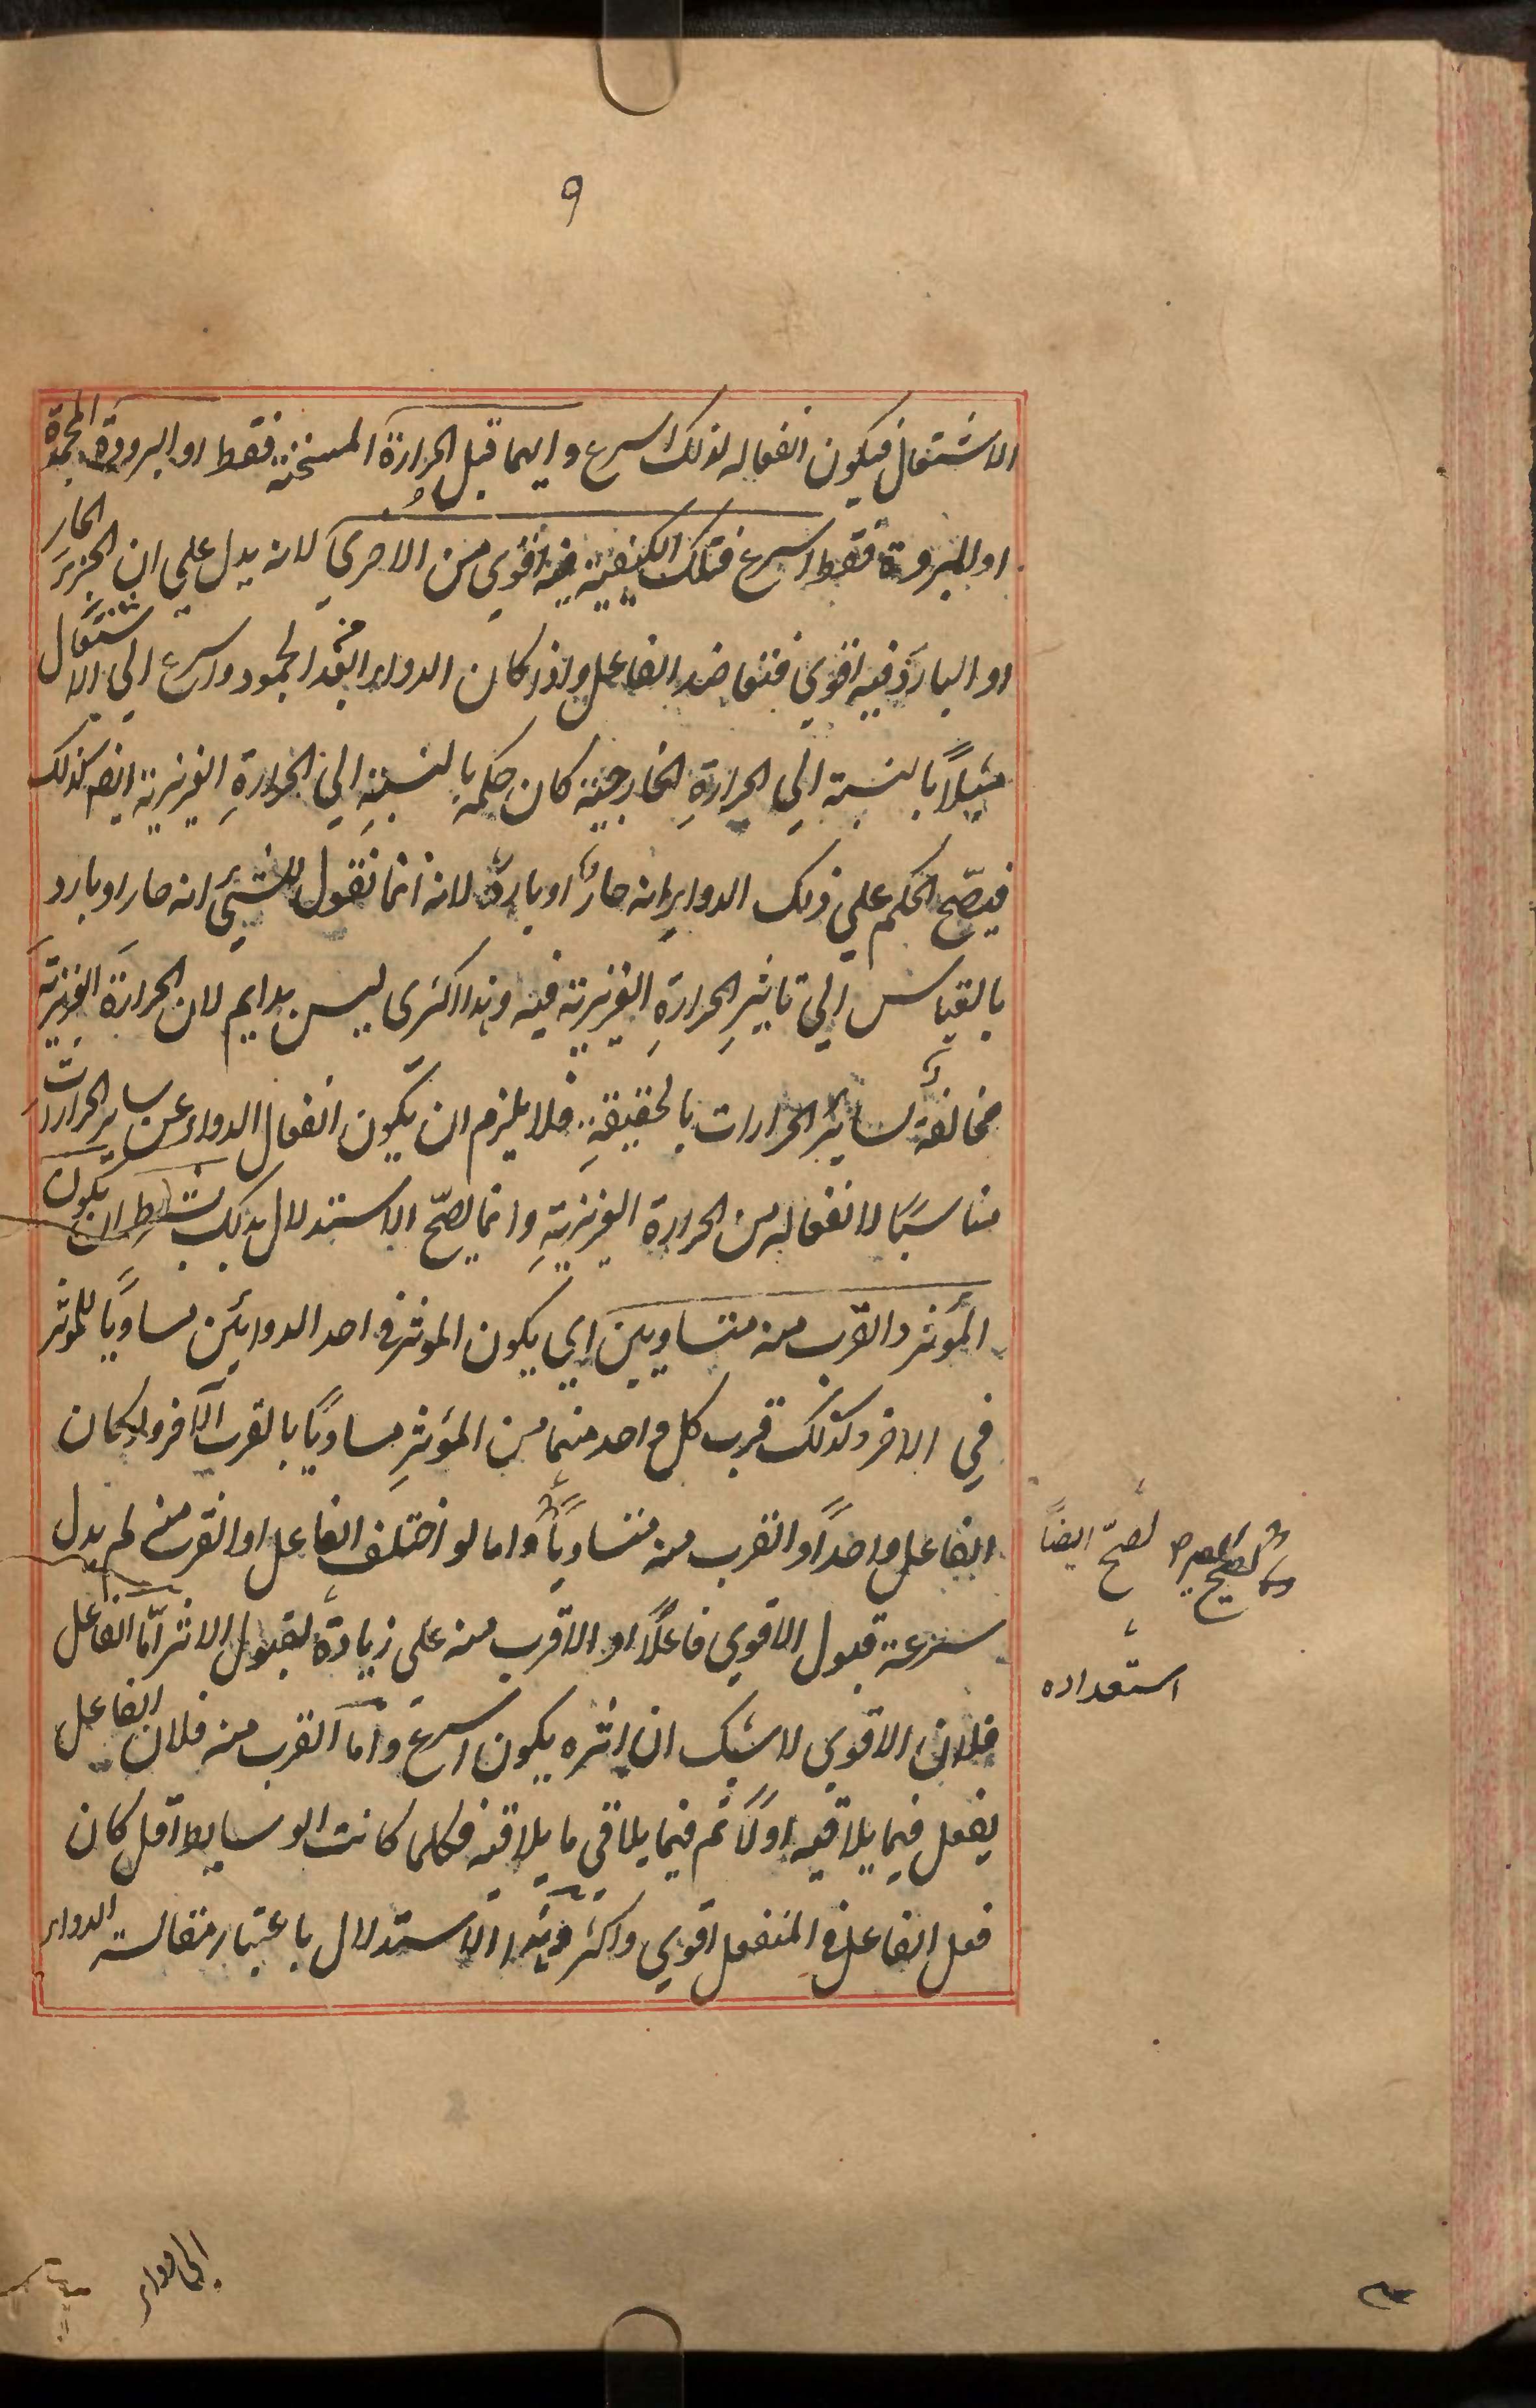 ٩
الاشتعال فيكون انفعاله لذلك اسرع وايهما قبل الحرارة المسخنة فقط او البرودة المجمدة
او المبردة فقط اسرع فتلك الكيفية فيه اقوي من الاخري لانه يدل علي ان الجزء الحار
او البارد فيه اقوي فتعاضد الفاعل واذا كان الدواء ابعد الجمود واسرع الي الاشتعال
مثلاً بالنسبة الي الحرارةِ الخارجية كان حكمه بالنسبةِ الي الحرارةِ الغريزية ايضا كذلك
فيصّح الحكم علي ذلك الدواءِ انه حارٌ او باردٌ لانه انما نقول للشئ انه حار او بارد
بالقياس الي تاثيرِ الحرارةِ الغريزية فيه وهذا اكثرى ليس بدايم لان الحرارةَ الغريزيةَ
مخالفةٌ لسائر الحرارات بالحقيقةِ فلا يلزم ان يكون انفعال الدواء عن ساير الحرارات
مناسبًا لانفعاله من الحرارة الغريزيةِ وانما يصحّ الاستدلال بذلك بشرط ان يكون
المؤثر والقرب منه متساويين اي يكون الموثر في احد الدوائين مساويًا للموثر
في الاخر وكذلك قرب كل واحد منهما من المؤثرِ مساويًا بالقرب الآخر ولو كان
الفاعل واحداً والقرب منه متساوياً واما لو اختلف الفاعل او القرب منه لم يدل
سرعة قبول الاقوي فاعلاً او الاقرب منه على زيادة لقبول الاثر امّا الفاعل
فلان الاقوي لاشك ان اثره يكون اسرع واما القرب منه فلان الفاعل
يفعل فيما يلاقيه اولاً ثم فيما يلاقى ما يلاقيه فكلما كانت الوسايط اقل كان
فعل الفاعل في المنفعل اقوي واكثر وهذا الاستدلال باعتبار مقالسة الدواء
لصحّ ايضاً
استعداده
الى دواء